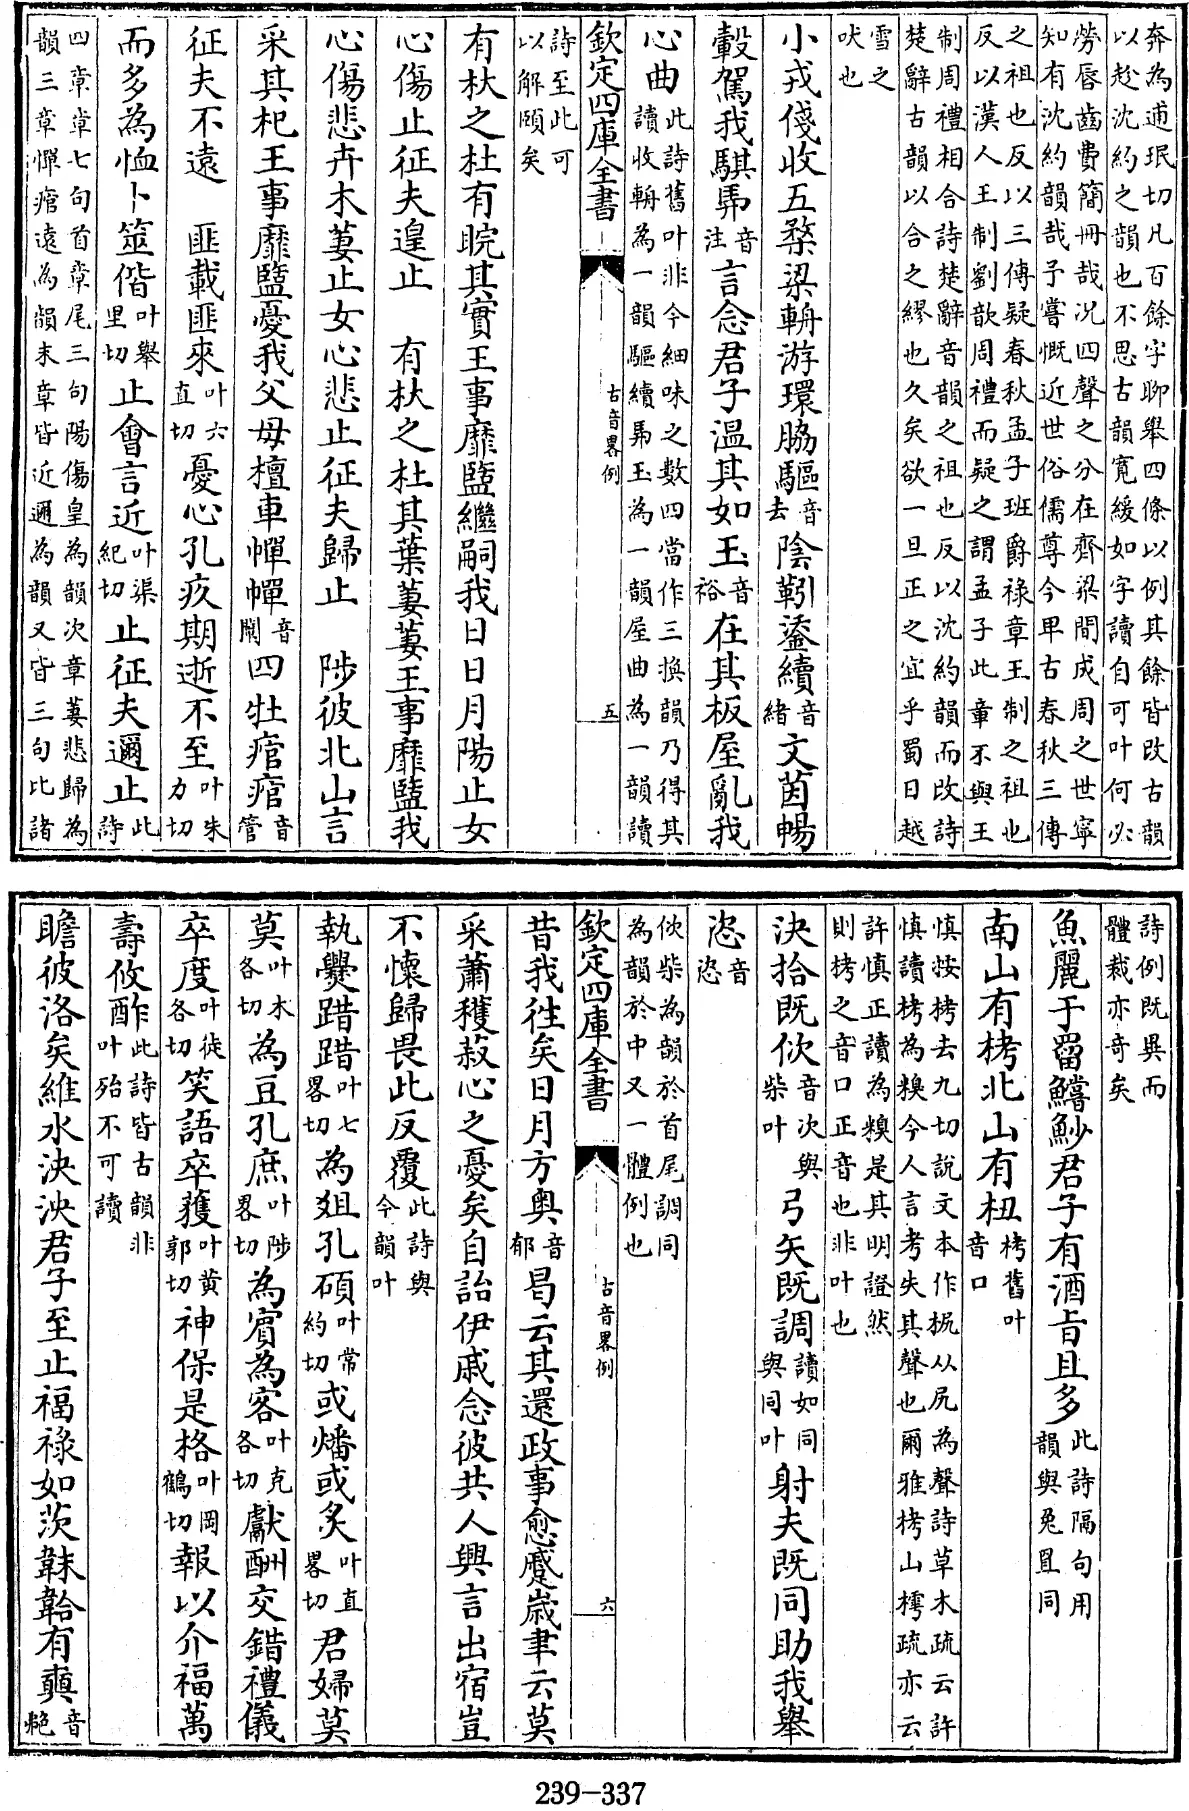 奔為逋珉切凡百餘字聊舉四條以例其餘皆改古韻
以趁沈約之韻也不思古韻寛緩如字讀自可叶何必
勞唇齒費簡冊哉况四聲之分在齊梁間成周之世寧
知有沈約韻哉予嘗慨近世俗儒尊今卑古春秋三傳
之祖也反以三傳疑春秋孟子班爵祿章王制之祖也
反以漢人王制劉歆周禮而疑之謂孟子此章不與王
制周禮相合詩楚辭音韻之祖也反以沈約韻而改詩
楚辭古韻以合之繆也久矣欲一旦正之宜乎蜀日越
雪之
吠也
小戎俴收五楘梁輈游環脇驅音去陰靷鋈續音緒文茵暢
轂駕我騏馵音注言念君子溫其如玉音裕在其板屋亂我
心曲此詩舊叶非今細味之數四當作三換韻乃得其
讀收輈為一韻驅續馵玉為一韻屋曲為一韻讀
欽定四庫全書
古音畧例
五
詩至此可
以解頤矣
有杕之杜有睆其實王事靡盬繼嗣我日日月陽止女
心傷止征夫遑止　有杕之杜其葉萋萋王事靡盬我
心傷悲卉木萋止女心悲止征夫歸止　陟彼北山言
采其杞王事靡盬憂我父母檀車幝幝音闡四牡痯痯音管
征夫不遠　匪載匪來叶六直切憂心孔疚期逝不至叶朱力切
而多為恤卜筮偕叶舉里切止會言近叶渠紀切止征夫邇止此詩
四章章七句首章尾三句陽傷皇為韻次章萋悲歸為
韻三章幝痯遠為韻末章皆近邇為韻又皆三句此諸
詩例既異而
體裁亦奇矣
魚麗于罶鱨鯊君子有酒旨且多此詩隔句用
韻與兔罝同
南山有栲北山有杻栲舊叶
音口
愼按栲去九切説文本作㧓从尻為聲詩草木疏云許
慎讀栲為糗今人言考失其聲也爾雅栲山樗疏亦云
許慎正讀為糗是其明證然
則栲之音口正音也非叶也
決拾既佽音次與柴叶弓矢既調讀如同與同叶射夫既同助我舉
㧘音恣
佽柴為韻於首尾調同
為韻於中又一體例也
欽定四庫全書
古音畧例
六
昔我徃矣日月方奥音郁曷云其還政事愈蹙歳聿云莫
采蕭穫菽心之憂矣自詒伊戚念彼共人興言出宿豈
不懷歸畏此反覆此詩與
今韻叶
執爨踖踖叶七畧切為俎孔碩叶常約切或燔或炙叶直畧切君婦莫
莫叶木各切為豆孔庶叶陟畧切為賓為客叶克各切獻酬交錯禮儀
卒度叶徒各切笑語卒獲叶黄郭切神保是格叶岡鶴切報以介福萬
壽攸酢此詩皆古韻非
叶殆不可讀
瞻彼洛矣維水泱泱君子至止福祿如茨韎韐有奭音赩
239-337